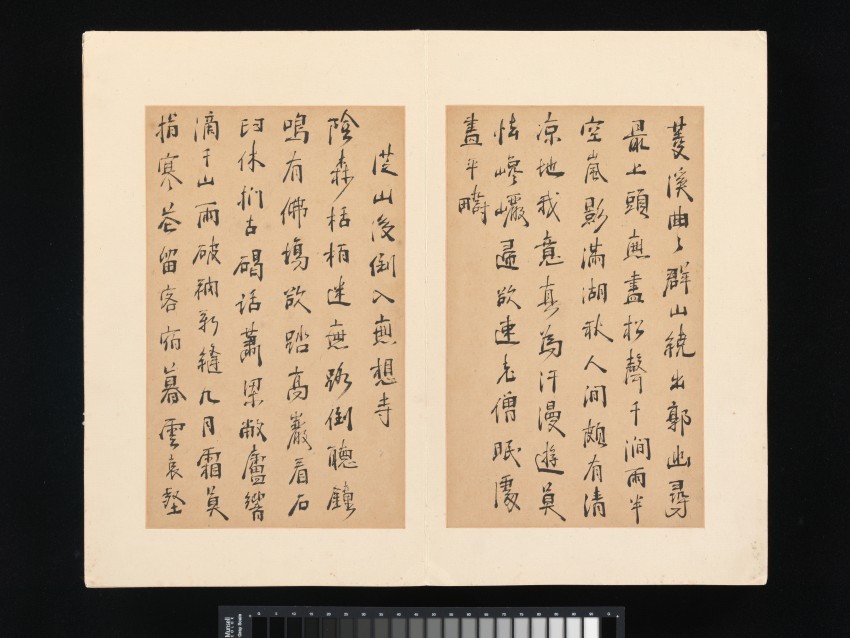 菱溪曲〻群山繞出郭幽尋
最上頭無盡松聲千澗雨半
空嵐影滿湖秋人間頗有清
涼地我意真為汗漫遊莫
怯嵾巗歸欲速老僧眠處
盡平疇
從山後倒入無想寺
陰森栝柏迷無路倒聽鐘
鳴有佛場欲踏高巖看石
臼休捫古碣話蕭梁敝廬響
滴千山雨破衲新縫九月霜莫
指寒花留客宿暮雲哀壑